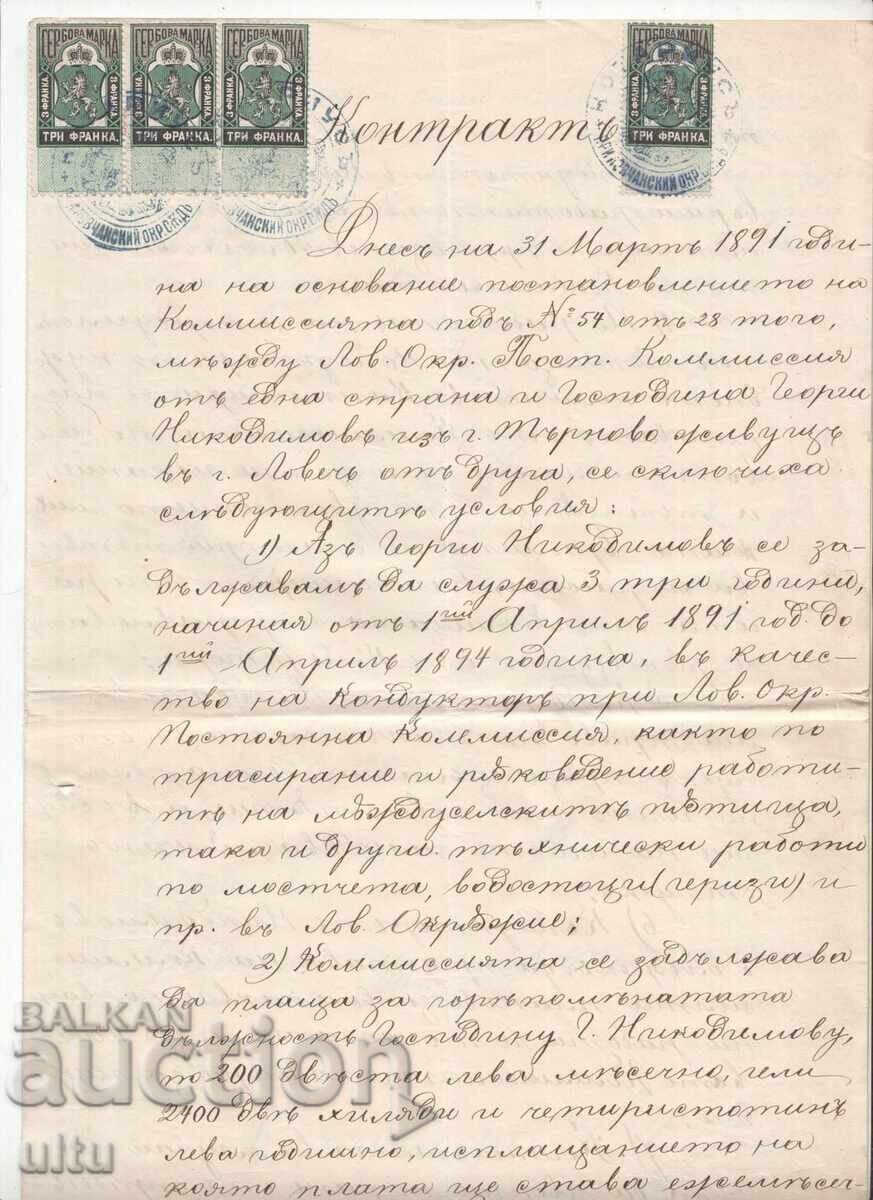 ГЕРБОВА МАРКА ГЕРБОВА МАРКА ГЕРБОВА МАРКА
3 ФРАНКА 3 ФРАНКА 3 ФРАНКА
ТРИ ФРАНКА. ТРИ ФРАНКА. ТРИ ФРАНКА. ТРИ ФРАНКА.
ОВЧАНСКИЙ ОКР. СѪДЪ
Контрактъ
Днесъ на 31 Мартъ 1891 годи-
на на основание постановлението на
Коммиссията подъ № 54 отъ 28 того,
мѣжду Лов. Окр. Пост. Коммиссия
отъ една страна и Господина Георги
Никодимовъ изъ г. Търново живущъ
въ г. Ловечь отъ друга, се сключиха
слѣдующитѣ условия:
1) Азъ Георги Никодимовъ се за-
дължавамъ да служа 3 три години,
начиная отъ 1ий Априлъ 1891 год. до
1ий Априлъ 1894 година, въ качес-
тво на Кондукторъ при Лов. Окр.
Постоянна Коммиссия, както по
трасирание и рѫководение работи-
тѣ на мѫждуселскитѣ пѫтища,
така и други тѣхнически работи
по мостчета, водостоци (геризи) и
пр. въ Лов. Окрѫжие;
2) Коммиссията се задължава
да плаща за горѣпомѣнатата
длъжность Господину Г. Никодимову,
по 200 двѣста лева мѣсечно, или
2400 двѣ хиляди и четиристотинъ
лева годишно, исплащанието на
която плата ще става ежемѣсеч-
BALKAN
auction
ultu